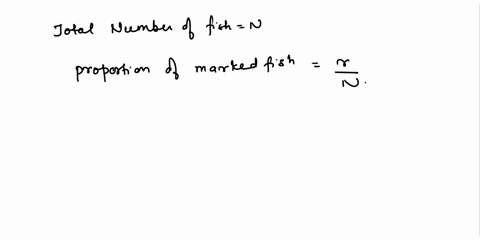 Total Number of fish = N
proportion of marked fish = r/N.